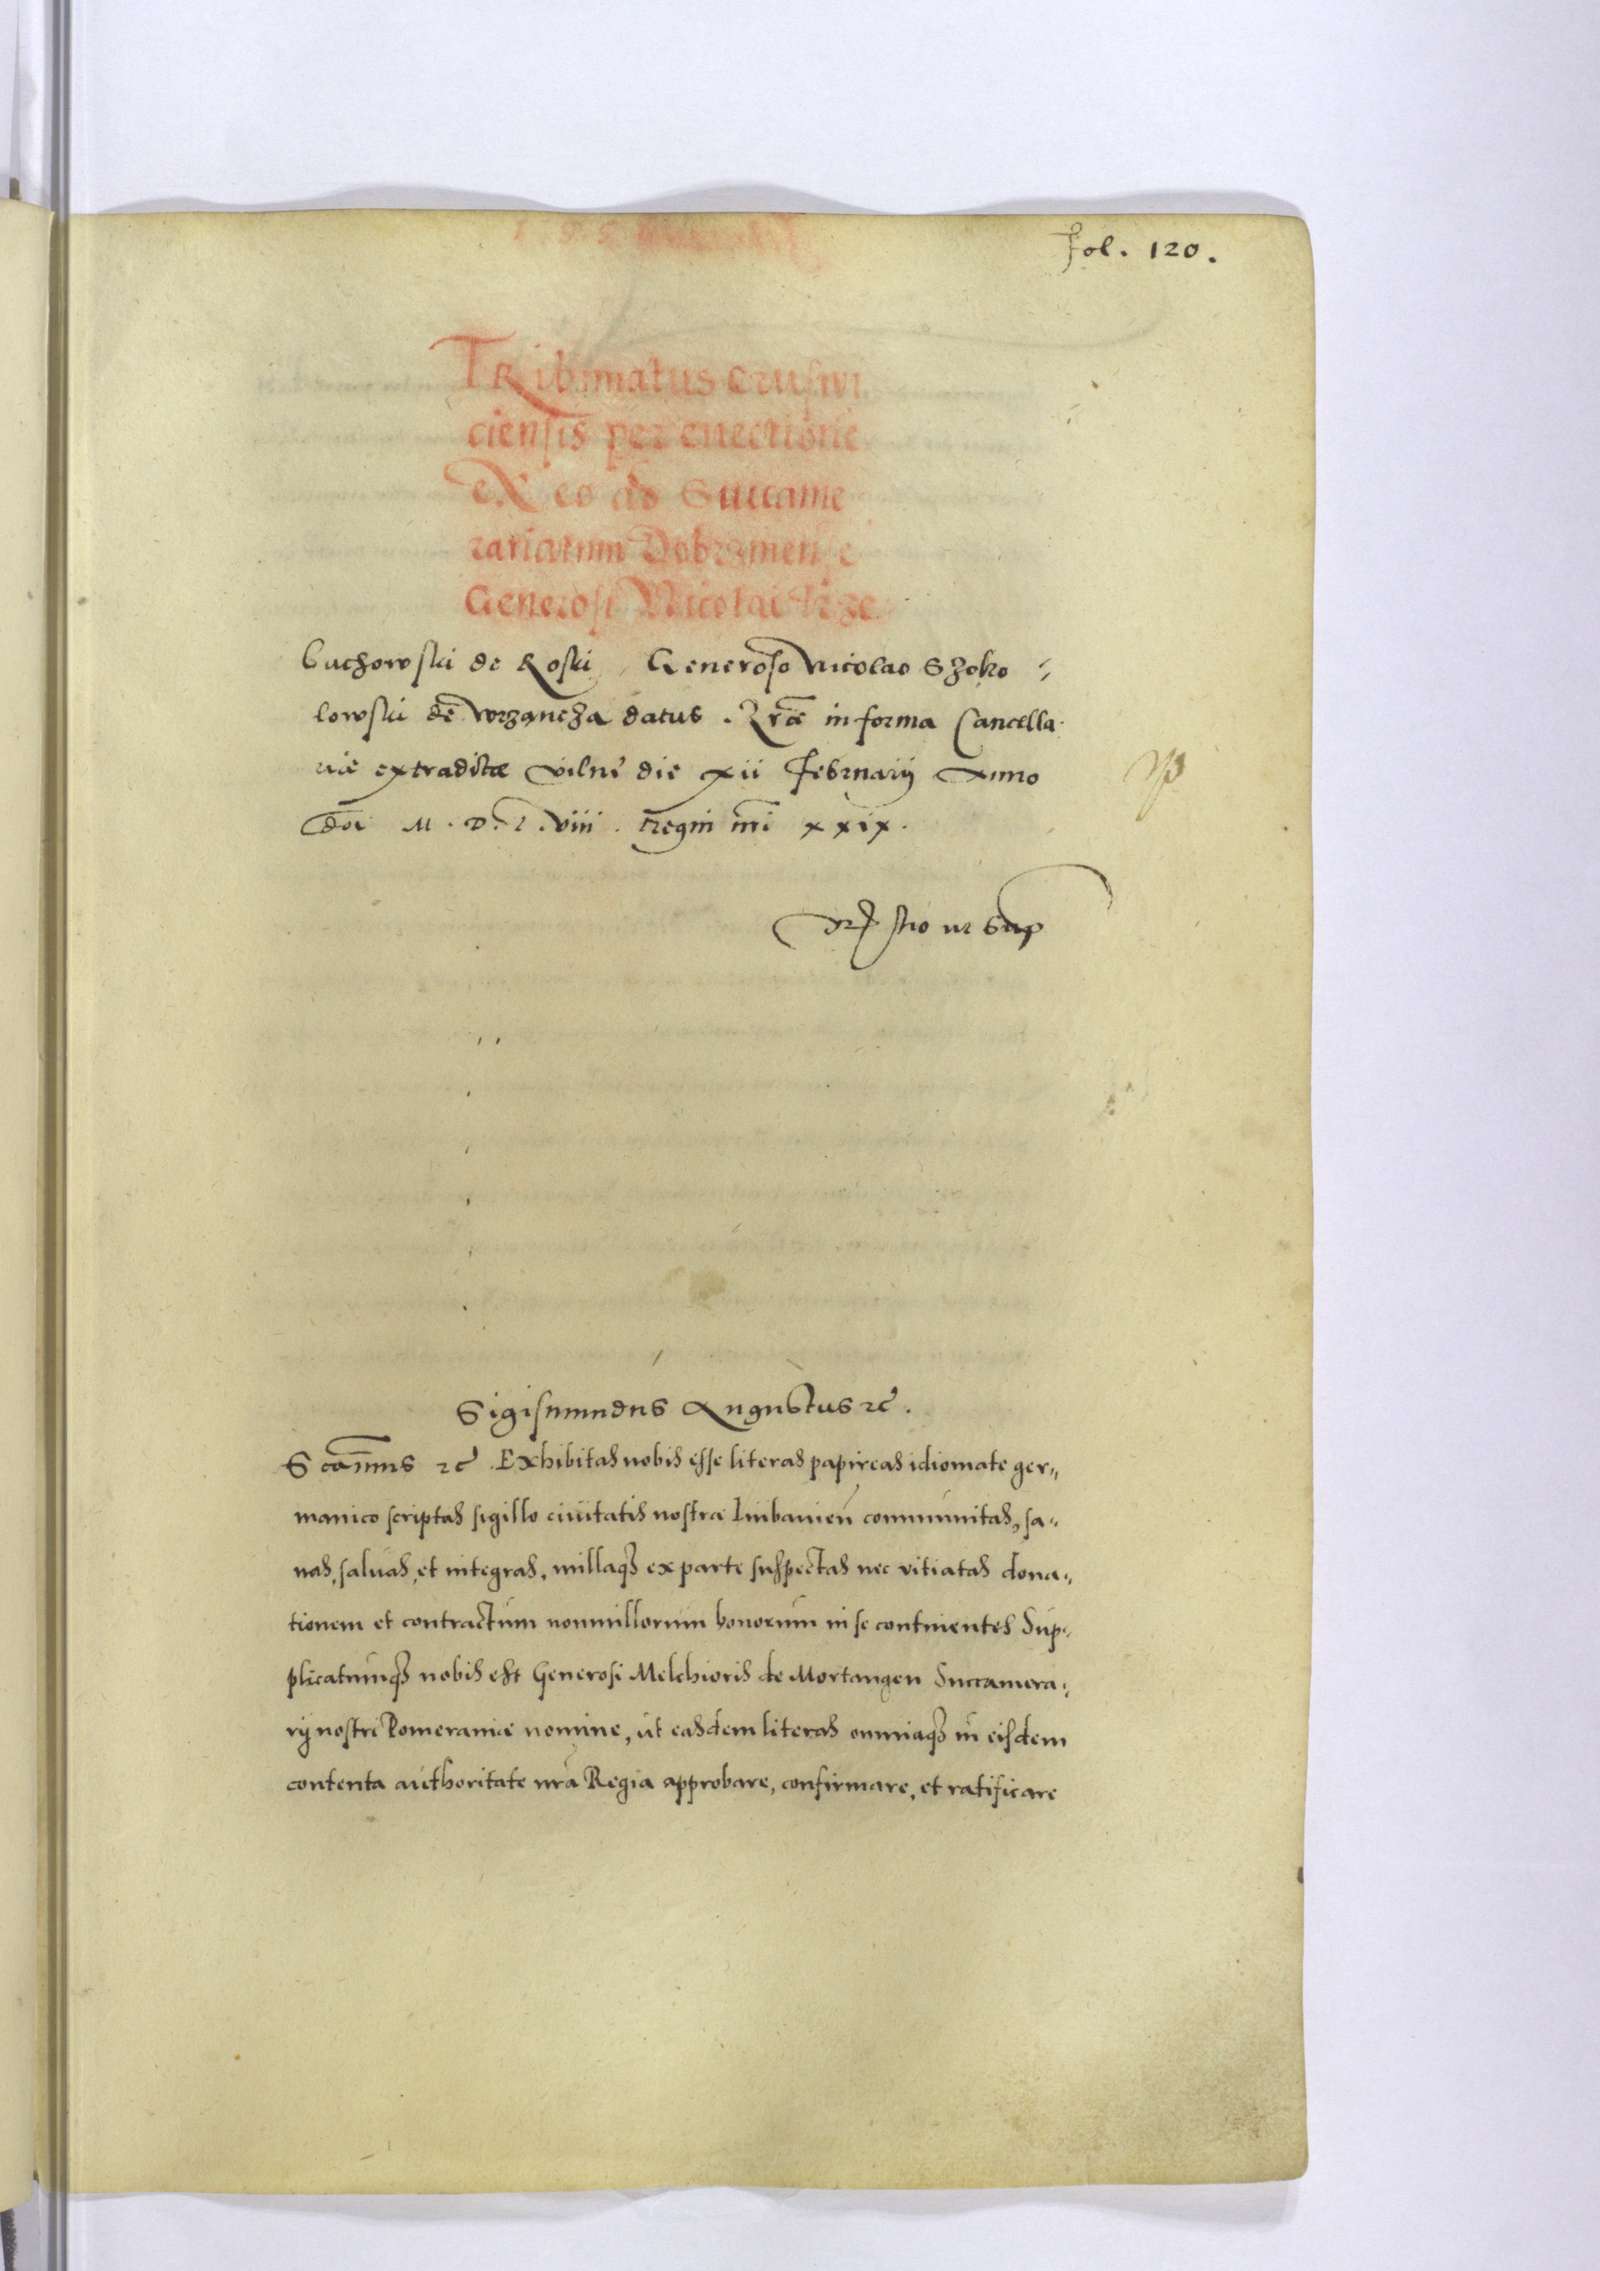 fol. 120.
Tribunatus Crusvi
ciensis per evectione
ex eo ad Succame
rariatum Dobrzinense
Generosi Nicolai Krze
Cuchowski de Roski, Generoso Nicolao Szoko⸗
lowski de Wrzancza datus. Lrae in forma Cancella
riae extraditae Vilne die xii Februarij Anno
Dni M.D.L.viii. Regni nri xxix.
Rtio ut sup
Sigismundus Augustus etc.
Scim̄us etc. Exhibitas nobis esse literas papireas idiomate ger⸗
manico scriptas sigillo civitatis nostrae Lubavien communitas, sa⸗
nas, salvas, et integras, nullaqꝫ ex parte suspectas nec vitiatas dona⸗
tionem et contractum nonnullorum bonorum in se continentes Sup⸗
plicatumqꝫ nobis est Generosi Melchioris de Mortangen Succamera⸗
rij nostri Pomeraniae nomine, ut easdem literas omniaqꝫ in eisdem
contenta authoritate nra Regia approbare, confirmare, et ratificare